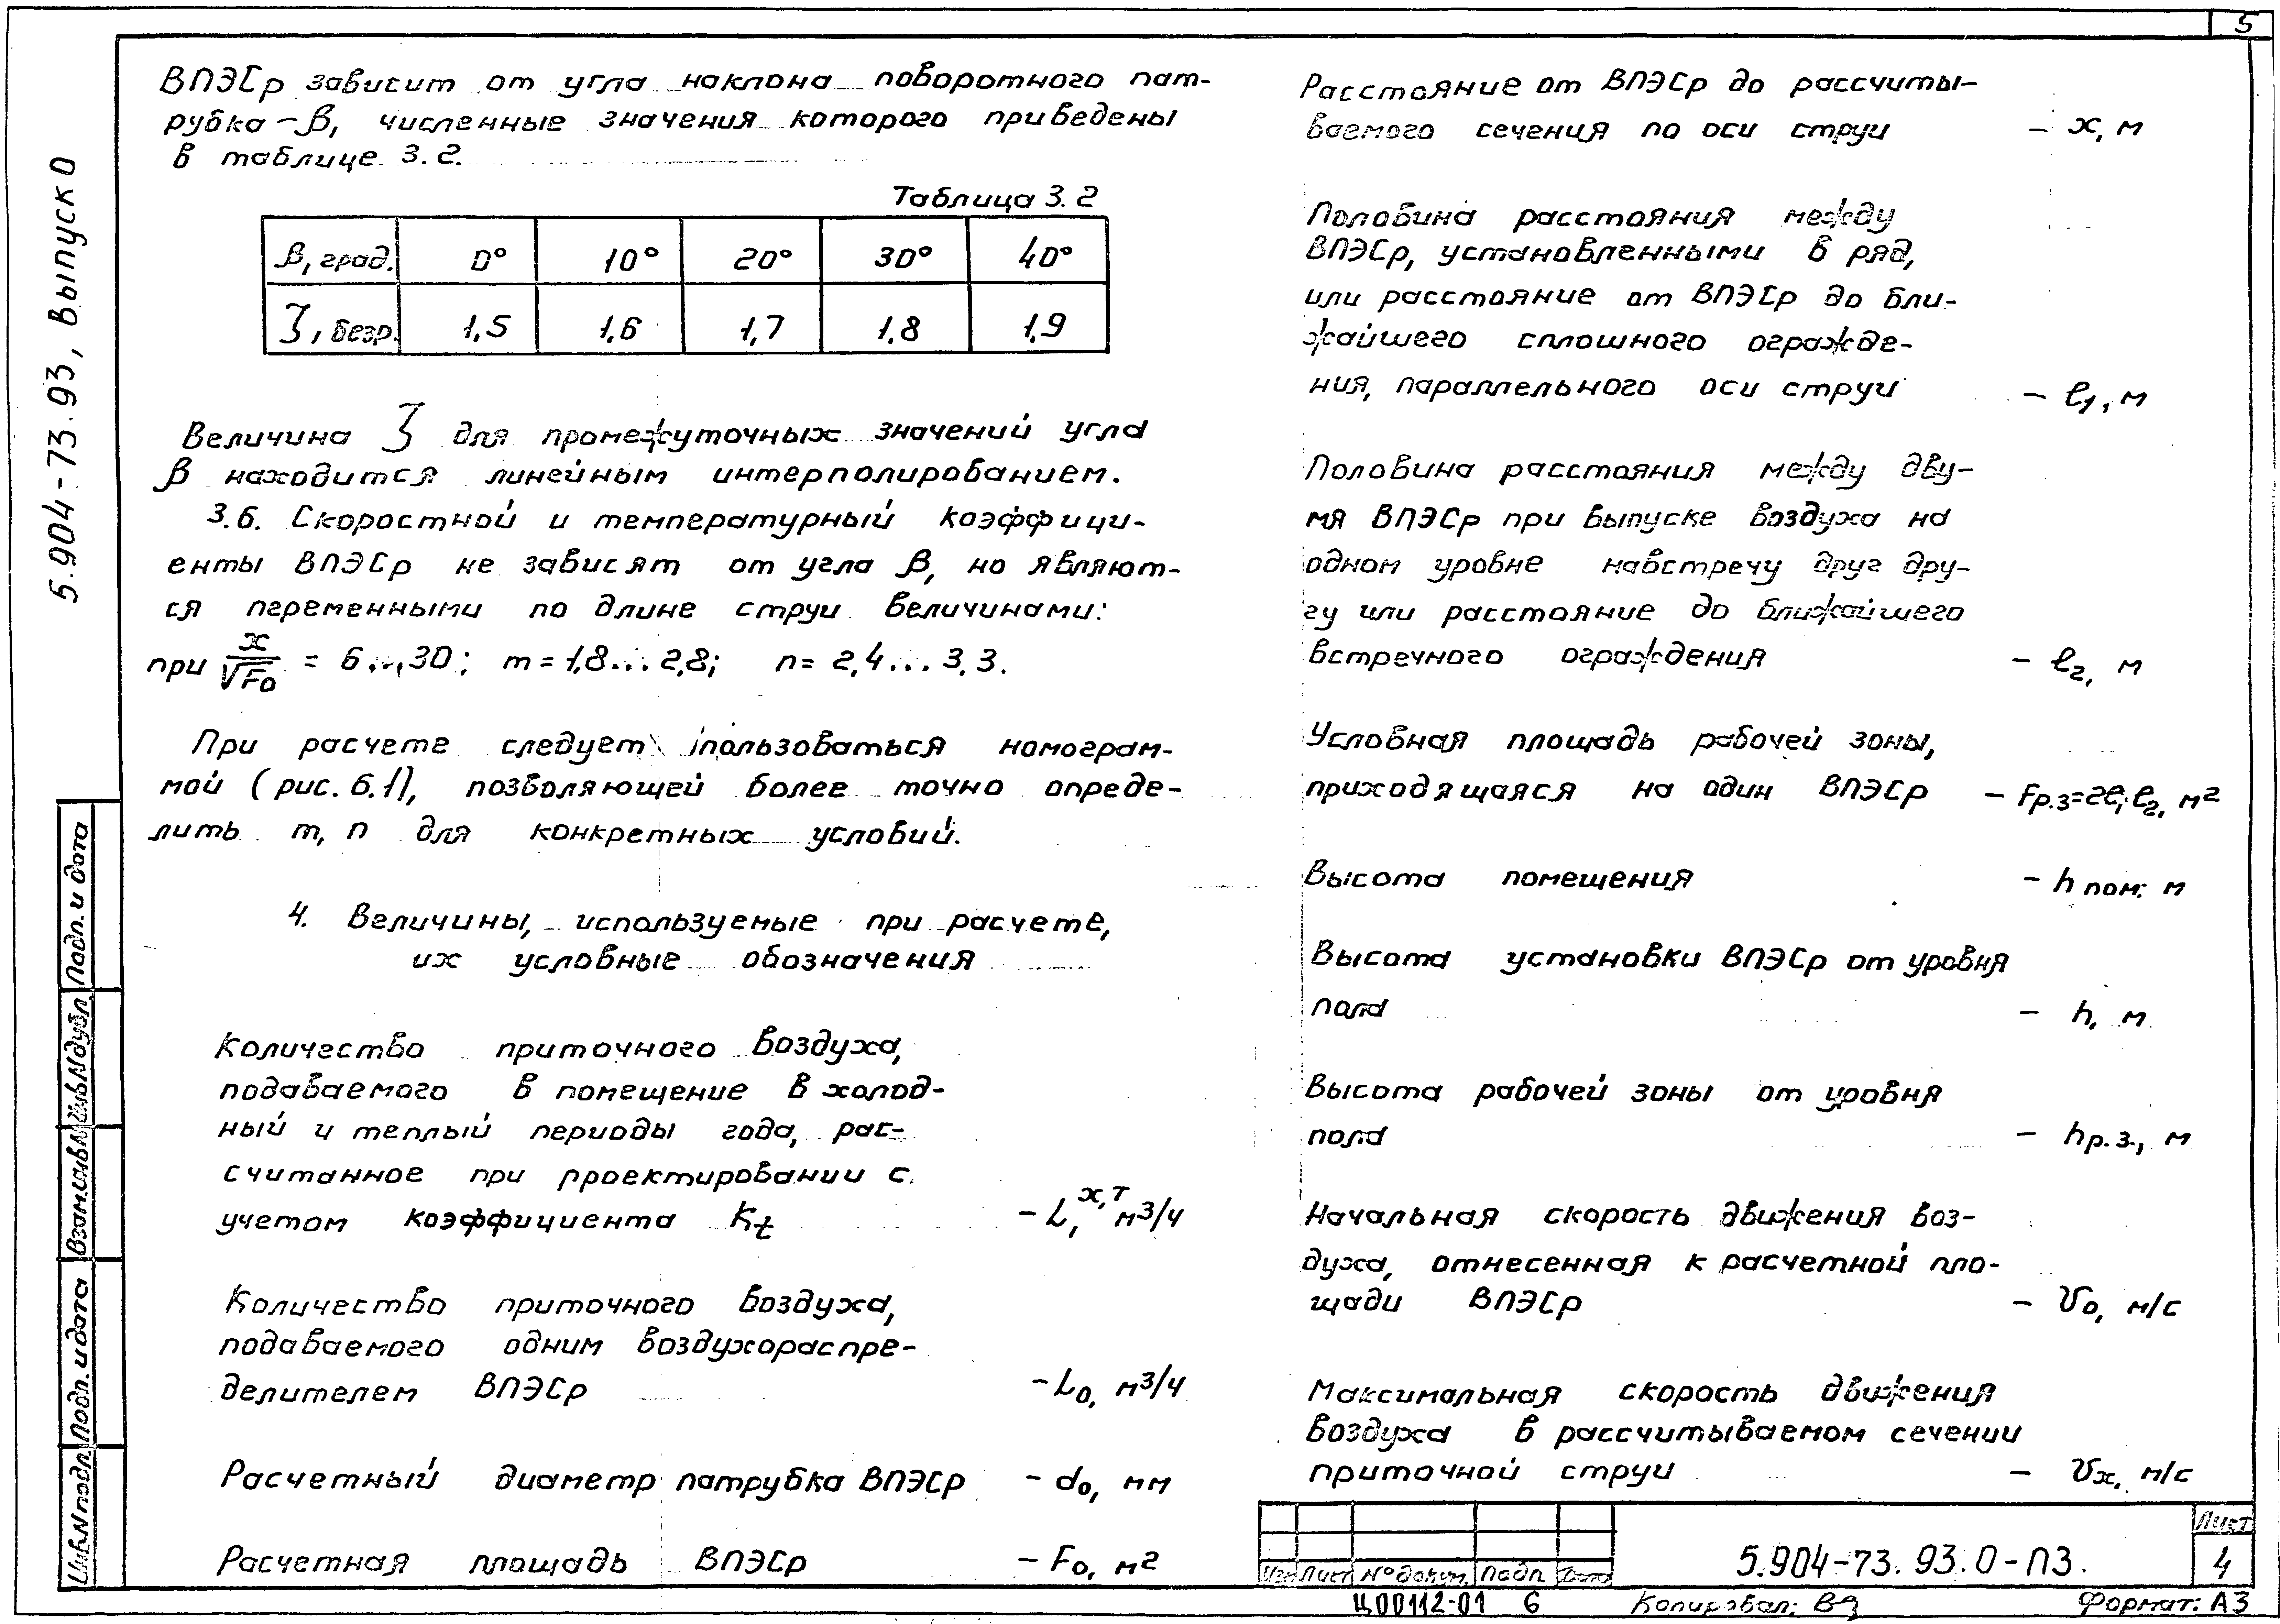 5
5.904-73.93, Выпуск 0
ВПЭСр зависит от угла наклона поворотного пат-
рубка – β, численные значения которого приведены
в таблице 3.2.
Таблица 3.2
β, град. 0° 10° 20° 30° 40°
ζ, безр. 1,5 1,6 1,7 1,8 1,9
Величина ζ для промежуточных значений угла
β находится линейным интерполированием.
3.6. Скоростной и температурный коэффици-
енты ВПЭСр не зависят от угла β, но являют-
ся переменными по длине струи величинами:
при x/√F₀ = 6...30; m = 1,8...2,8; n = 2,4...3,3.
При расчете следует пользоваться номограм-
мой (рис. 6.1), позволяющей более точно опреде-
лить m, n для конкретных условий.
4. Величины, используемые при расчете,
их условные обозначения
Количество приточного воздуха,
подаваемого в помещение в холод-
ный и теплый периоды года, рас-
считанное при проектировании с
учетом коэффициента Kt – L^х,т, м³/ч
Количество приточного воздуха,
подаваемого одним воздухораспре-
делителем ВПЭСр – L₀, м³/ч
Расчетный диаметр патрубка ВПЭСр – d₀, мм
Расчетная площадь ВПЭСр – F₀, м²
Расстояние от ВПЭСр до рассчиты-
ваемого сечения по оси струи – x, м
Половина расстояния между
ВПЭСр, установленными в ряд,
или расстояние от ВПЭСр до бли-
жайшего сплошного огражде-
ния, параллельного оси струи – ℓ₁, м
Половина расстояния между дву-
мя ВПЭСр при выпуске воздуха на
одном уровне навстречу друг дру-
гу или расстояние до ближайшего
встречного ограждения – ℓ₂, м
Условная площадь рабочей зоны,
приходящаяся на один ВПЭСр – Fр.з=2ℓ₁ℓ₂, м²
Высота помещения – hпом. м
Высота установки ВПЭСр от уровня
пола – h, м
Высота рабочей зоны от уровня
пола – hр.з., м
Начальная скорость движения воз-
духа, отнесенная к расчетной пло-
щади ВПЭСр – v₀, м/с
Максимальная скорость движения
воздуха в рассчитываемом сечении
приточной струи – vx, м/с
Подп. и дата
Инв.N дубл.
Взам.инв.N
Подп. и дата
Инв.N подл.
Изм Лист № докум. Подп. Дата
5.904-73.93.0-ПЗ.
Лист
4
Ц00112-01 6
Копировал: Вз
Формат: А3